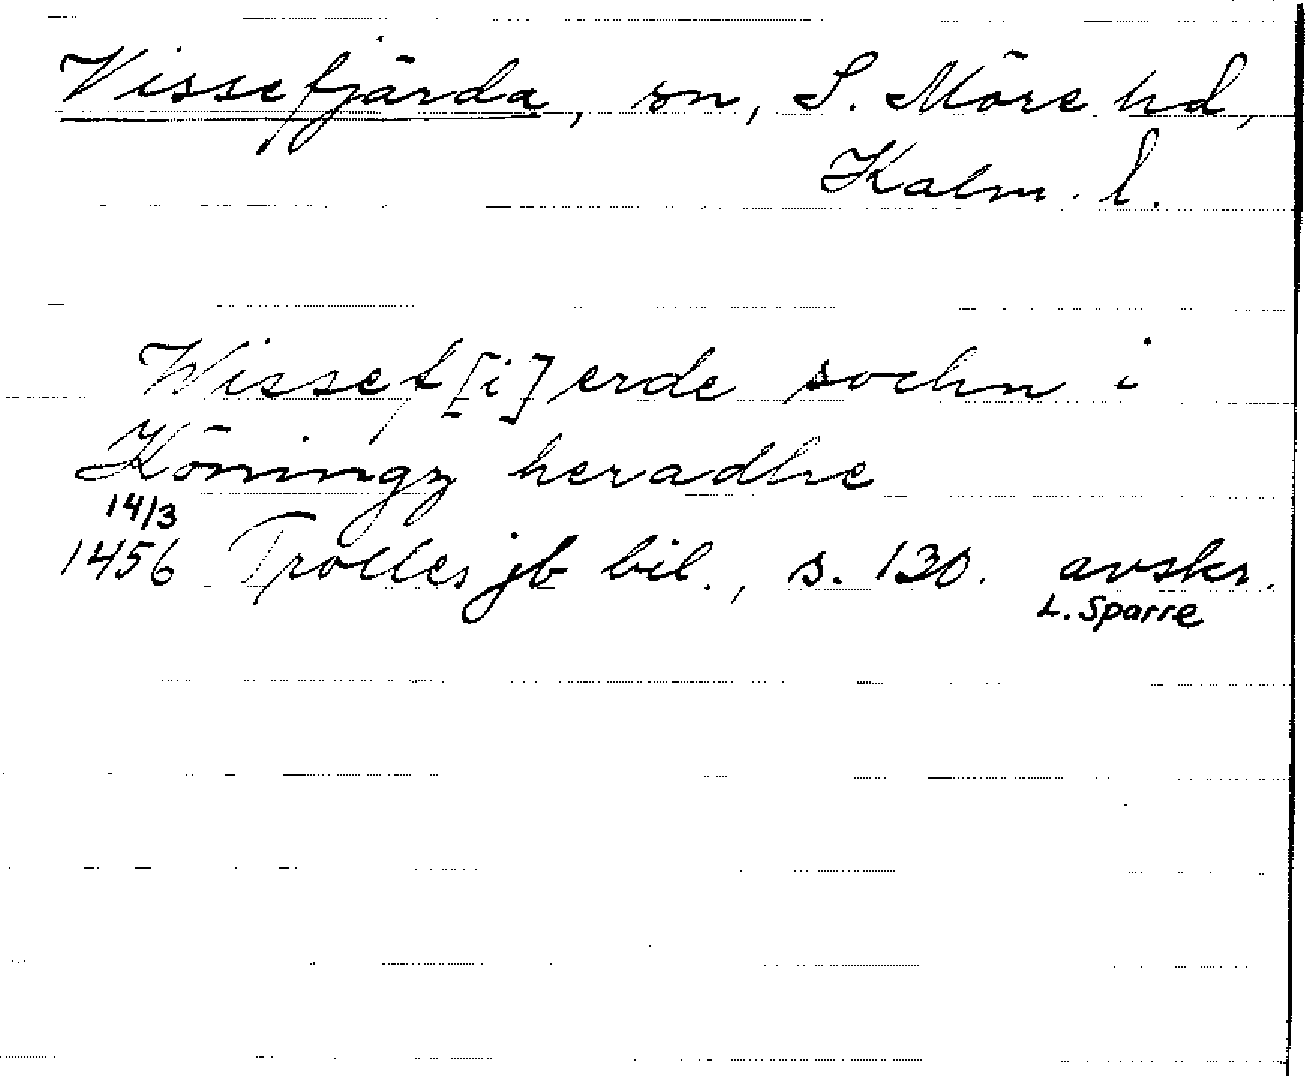 Vissefjärda, sn, S. Möre hd,
Kalm. l.
Wissef[i]erde sochn i
Köningz heradhe
14/3
1456 Trolles jb bil., s. 130. avskr.
L. Sparre